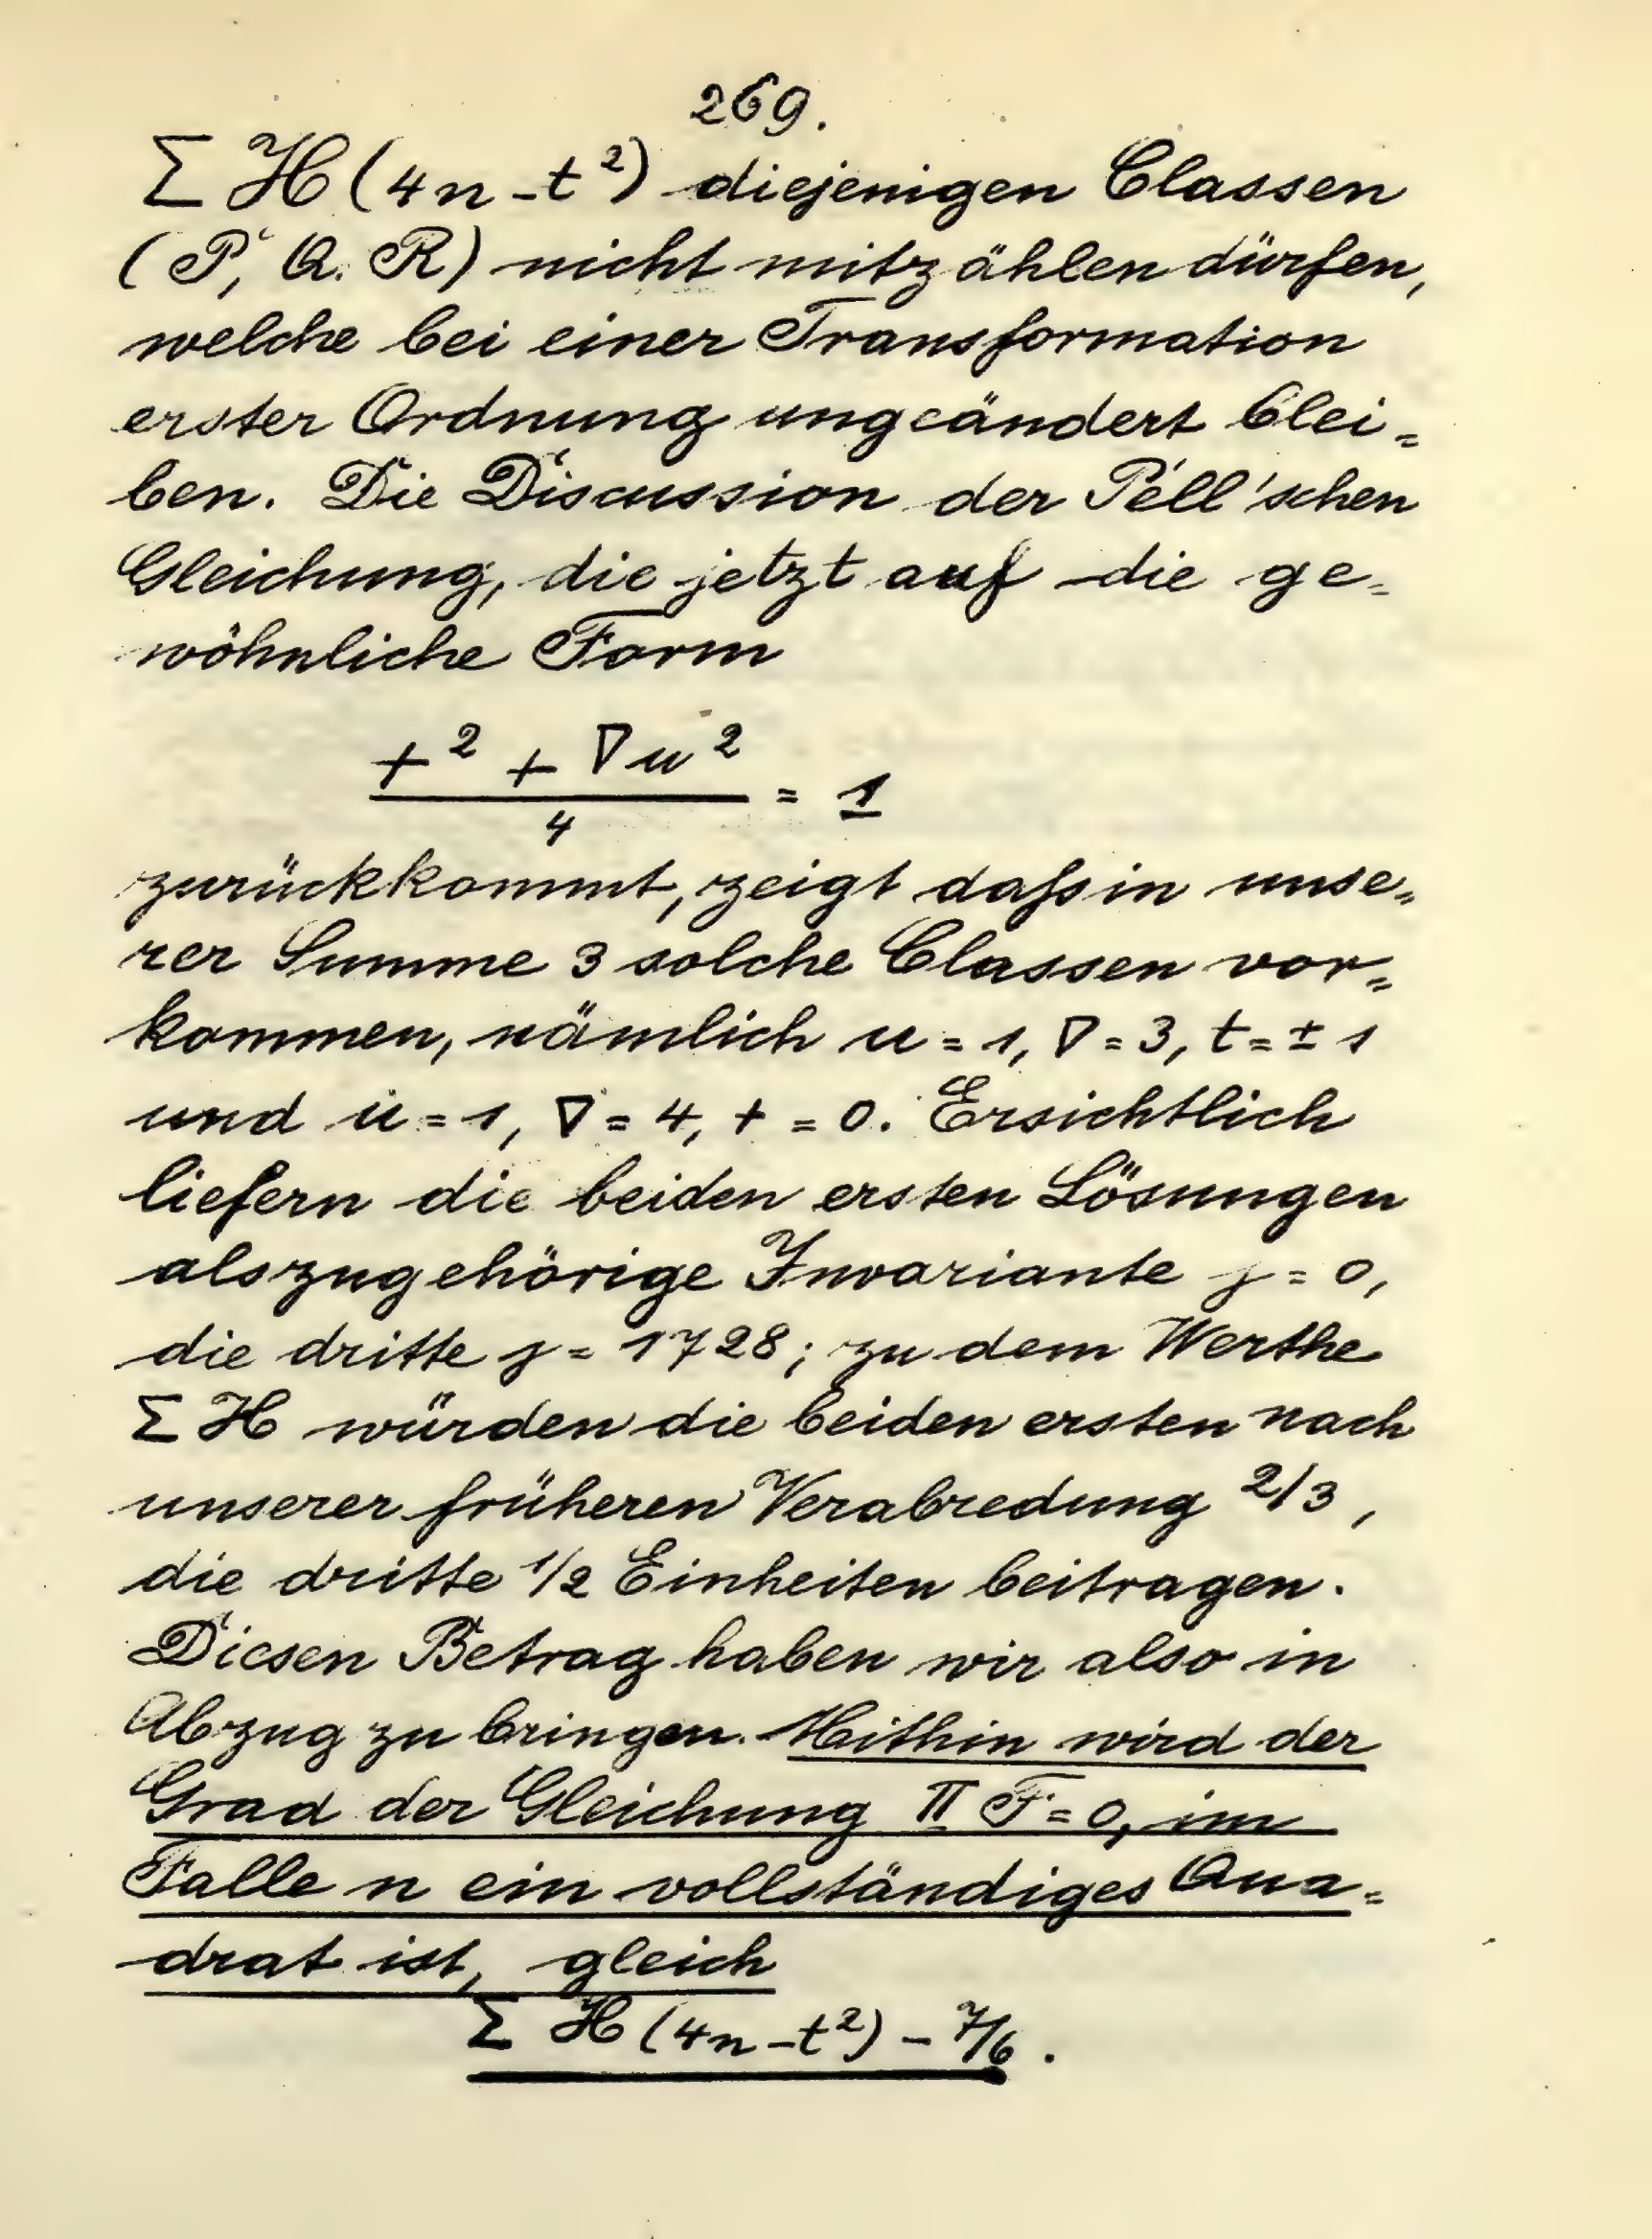 269.
Σ H (4n - t²) diejenigen Classen
(P, Q. R) nicht mitzählen dürfen,
welche bei einer Transformation
erster Ordnung ungeändert blei=
ben. Die Discussion der Pell'schen
Gleichung, die jetzt auf die ge=
wöhnliche Form
(t² + ∇u²)/4 = 1
zurückkommt, zeigt dass in unse=
rer Summe 3 solche Classen vor=
kommen, nämlich u = 1, ∇ = 3, t = ± 1
und u = 1, ∇ = 4, t = 0. Ersichtlich
liefern die beiden ersten Lösungen
als zugehörige Invariante j = 0,
die dritte j = 1728; zu dem Werthe
Σ H würden die beiden ersten nach
unserer früheren Verabredung 2/3,
die dritte 1/2 Einheiten beitragen.
Diesen Betrag haben wir also in
Abzug zu bringen. Mithin wird der
Grad der Gleichung Π F = 0, im
Falle n ein vollständiges Qua=
drat ist, gleich
Σ H (4n - t²) - 7/6.